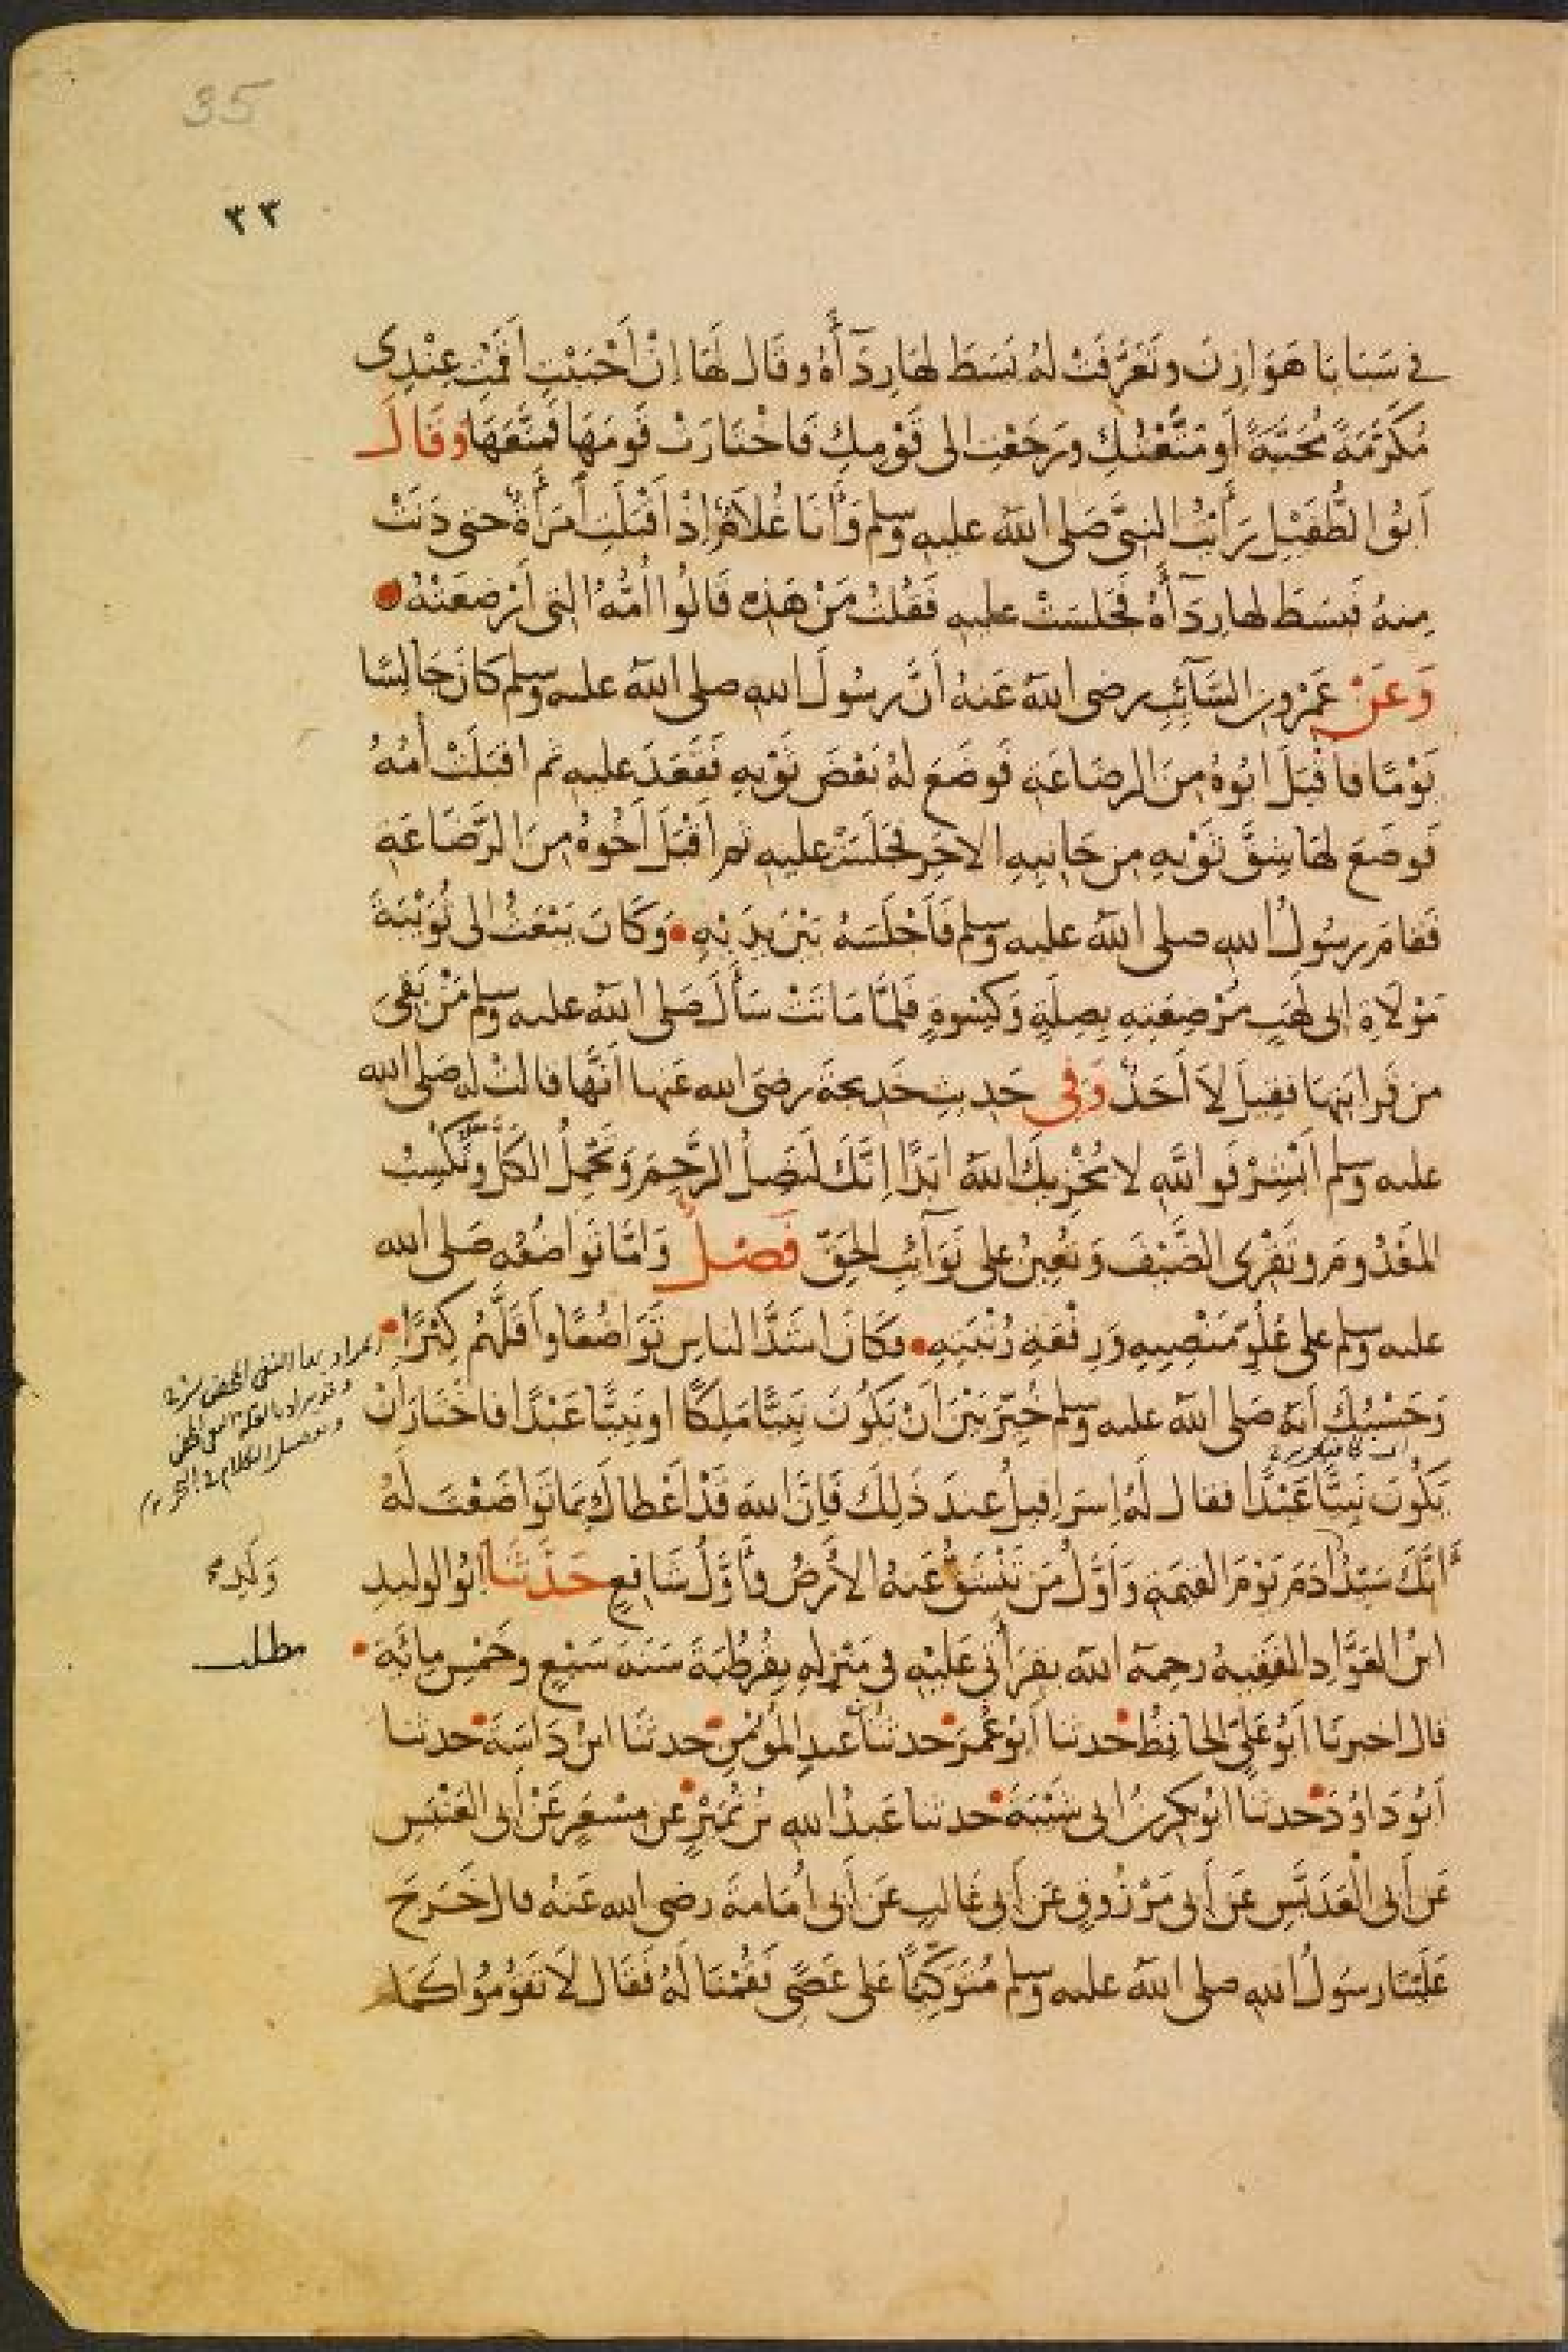 35
٣٣
في سَبَايَا هَوَازِنَ وتَعَرَّفَتْ لهُ بَسَطَ لهَا رِدَآأَهُ وقَالَ لَهَا اِنْ اَحْبَبْتِ اَقَمْتِ عِنْدِى
مُكَرَّمَةً مُحَبَّةً اَو مَتَّعْتُكِ ورَجَعْتِ الى قَوْمِكِ فَاخْتَارَتْ قَومَهَا فَمَتَّعَهَا وَقَالَ
اَبُو الطُّفَيْلِ رَأَيْتُ النبىَّ صَلى اللهُ عليهِ وسلم وَأَنَا غُلَامٌ اِذْ اَقْبَلَتِ اَمْرَأَةٌ حتى دَنَتْ
مِنهُ فَبَسَطَ لهارِدَآأَهُ فَجَلسَتْ عليهِ فَقلتُ مَنْ هَذِهِ قَالُوا اُمُّهُ التِى أَرْضَعَتْهُ
وَعَنْ عَمْرِو بنِ السَّآئِبِ رضى اللهُ عَنهُ أَنَّ رسُولَ اللهِ صلى اللهُ عليه وسلم كَانَ جَالِسًا
يَوْمًا فاَقْبَلَ ابُوهُ مِنَ الرضَاعَةِ فَوضَعَ لهُ بَعْضَ ثَوْبِهِ فَقَعَدَ عليهِ ثم اقبَلَتْ أُمُّهُ
فَوضَعَ لهَا شِقَّ ثَوْبِهِ مِن جَانِبِهِ الاخَرِ فَجَلَسَتْ عليهِ ثم أَقْبَلَ اَخُوهُ مِنَ الرَّضَاعَةِ
فَقامَ رسُولُ اللهِ صلى اللهُ عليه وسلم فَاَجْلَسَهُ بَيْنَ يَدَيْهِ وَكَانَ يَبْعَثُ الى ثُوَيْبَةَ
مَوْلَاةِ ابى لَهَبٍ مُرْضِعَتِهِ بِصِلَةٍ وَكِسْوةٍ فَلمَّا مَاتَتْ سَأَلَ صَلى اللهُ عليه وسلم مَنْ بَقِىَ
من قَرابَتِهَا فقِيلَ لَا اَحَدٌ وَفِى حَدِيثِ خَدِيجَةَ رضىَ الله عَنها انَّهَا قالتْ له صَلى الله
عليه وسلم اَبْشِرْ فَواللهِ لا يُخْزِيكَ اللهُ ابَدًا اِنَّكَ لتَصِلُ الرَّحِمَ وَتَحْمِلُ الكَلَّ وتُكْسِبُ
المعْدُومَ وتَقْرِى الضَّيْفَ وَتُعِينُ على نَوَآئِبِ الحَقِّ فَصْلٌ وَامَّا تَوَاضُعُه صَلى الله
عليه وسلم على عُلُوِّ مَنْصِبِهِ وَرِفْعَةِ رُتْبَتِهِ فكَانَ اشَدَّ الناسِ تَوَاضُعًا واَقَلَّهُمْ كِبْرًا
وَحَسْبُكَ اَنهُ صَلى اللهُ عليه وسلم خُيِّرَ بَيْنَ اَنْ يَكُونَ نَبِيًّا مَلِكًا اونَبِيًّا عَبْدًا فاخْتَارَ اَنْ
يَكُونَ نَبِيًّا عَبْدًا فقال لَهُ اِسرَافِيلُ عِندَ ذَلِكَ فَاِنَّ اللهَ قَدْ اَعْطاكَ بِمَا تَوَاضَعْتَ لَهُ
اَنَّكَ سَيِّدُ وَلَدِ ادَمَ يَوْمَ القِيمَةِ وَاَوَّلُ مَن تَنْشَقُّ عَنهُ الاَرْضُ وأَوَّلُ شَافِعٍ حَدَّثَنَا ابُوالوليدِ
ابنُ العَوَّادِ الفَقِيهُ رحمهَ اللهُ بقِرَأَتى عَلَيْهِ فى مَنْزِلِهِ بِقُرْطُبَةَ سَنَةَ سَبْعٍ وخَمْسِ مِائَةٍ
قال اخبرنَا اَبُو عَلِىٍّ الحَافِظُ حدثنا اَبُوعُمَرَ حدثنا ابنُ عَبدِ المُؤْمِنِ حدثَنَا ابنُ دَاسَةَ حدثنا
اَبُودَاوُدَ حدثنَا ابُوبكرِ بنُ ابى شَيْبَةَ حدثنا عَبدُ اللهِ بنُ نُمَيْرٍ عن مِسْعَرٍ عَنْ اَبى العَنْبَسِ
عَن أَبى الْعَدَبَّسِ عَن أَبى مَرْزُوقٍ عَن أَبى غَالبٍ عَن أَبى اُمَامَةَ رضى الله عَنهُ قال خَرَجَ
عَلَيْنَا رسُولُ اللهِ صلى اللهُ عليه وسلم مُتَوَكِّئًا عَلى عَصًى فَقُمْنَا لَهُ فَقَالَ لَا تَقوُمُوا كَمَا
وَلَدِ
مطلب